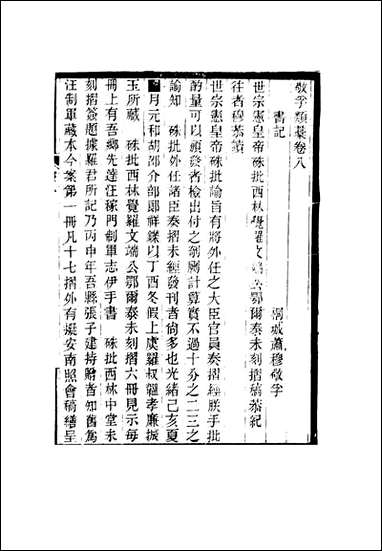 敬孚類稾卷八
書記
桐城蕭穆敬孚
世宗憲皇帝硃批西林覺羅文端公鄂爾泰未刻摺稿恭紀
往者穆恭讀
世宗憲皇帝硃批諭旨有將外任之大臣官員奏摺經朕手批
酌量可以頒發者檢出付之剞劂計算實不過十分之二三之
諭知 硃批外任諸臣奏摺未經發刊者尙多也光緒己亥夏
月元和胡部介部郞祥鑅以丁酉冬假上虞羅叔韞孝廉振
玉所藏 硃批西林覺羅文端公鄂爾泰未刻摺六冊見示每
冊上有吾鄉先達汪稼門制軍志伊手書 硃批西林中堂未
刻摺簽題據羅君所記乃丙申年吾縣張子建持贈者知舊爲
汪制軍藏本今案第一冊凡十七摺外有擬安南照會稿繕呈